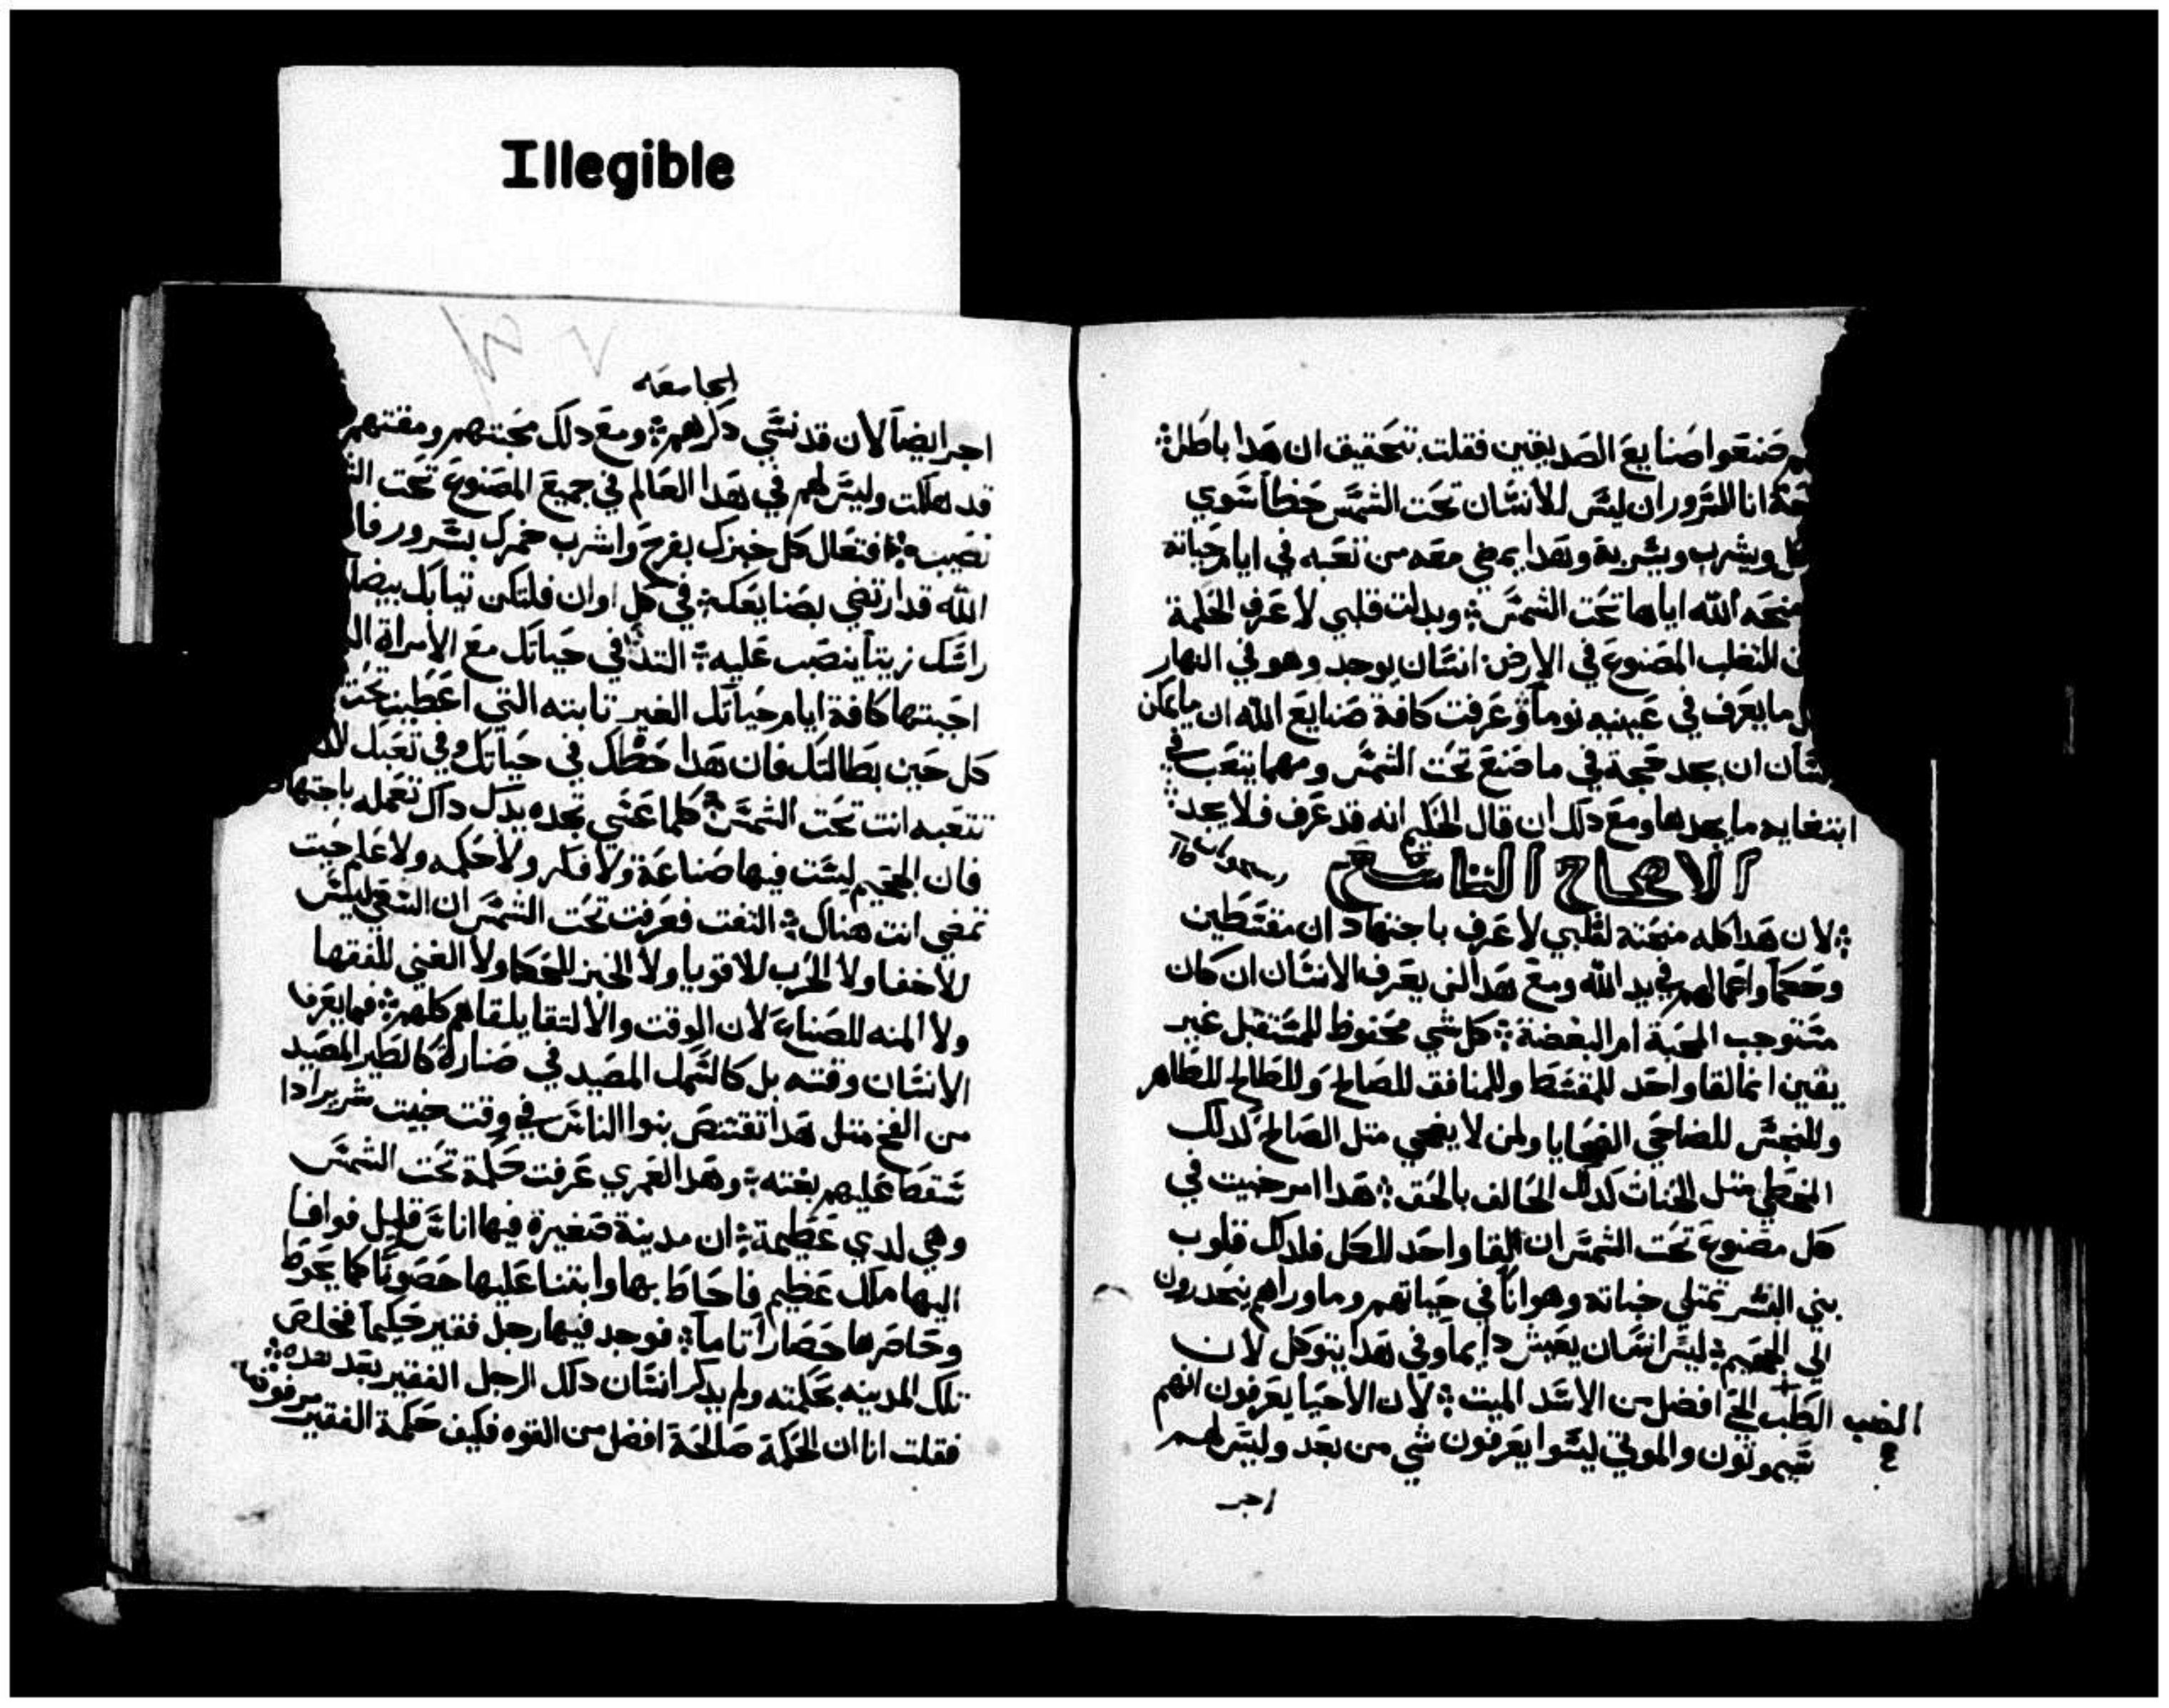 Illegible
صنعوا صنايع الصديقين فقلت بتحقيق ان هذا باطل
انا السرور ان ليس للانسان تحت الشمس حظاً سوي
ويشرب ويسر به وهذا يمضي معه من تعبه في ايام حياته
منحه الله اياها تحت الشمس وبدلت قلبي لاعرف الحكمة
المصنوع في الارض انسان يوجد وهو في النهار
ما يعرف في عينيه نوماً وعرفت كافة صنايع الله ان ما يمكن
ان يجد حجة في ما صنع تحت الشمس ومهما يتعب في
ابتغايه ما يجدها ومع دلك ان قال الحكيم انه قد عرف فلا يجد
الاصحاح التاسع
لان هدا كله منحته لقلبي لاعرف باجتهاد ان مقسطين
وحكما واعمالهم في يد الله ومع هدا لن يعرف الانسان ان كان
مستوجب المحبة ام البغضة كل شي محفوظ للمستقبل غير
يقين انما لقا واحد للمقسط وللمنافق للصالح وللطالح للطاهر
وللنجس للضاحي الضحايا ولمن لا يضحي متل الصالح كدلك
المخطي متل الحنات كدلك الحالف بالحق هدا امر خبيت في
كل مصنوع تحت الشمس ان القا واحد للكل فلدلك قلوب
بني البشر تمتلي خباته وهواناً في حياتهم وما وراهم ينحدرون
الي الجحيم ليس انسان يعيش دايماً وفي هدا يتوكل لان
الكلب الحي افضل من الاسد الميت لان الاحيا يعرفون انهم
سيموتون والموتي ليسوا يعرفون شي من بعد وليس لهم
اجر
الجامعه
اجر ايضاً لان قد نسي دكرهم ومع دلك محبتهم ومقتهم
قد هلكت وليس لهم في هدا العالم في جميع المصنوع تحت
نصيب فتعال كل خبزك بفرح واشرب خمرك بسرور
الله قد ارتضي بصنايعك في كل اوان فلتكن تيابك بيضا
راسك زيتاً ينصب عليه التد في حياتك مع الامراة
احببتها كافة ايام حياتك الغير تابته التي اعطيت تحت
كل حين بطالتك فان هدا حظك في حياتك وفي تعبك
تتعبه انت تحت الشمس كلما عسي تجده يدك داك تعمله باجتهاد
فان الجحيم ليست فيها صناعة ولا فكر ولا حكمه ولا علم حيت
تمضي انت هناك التفت فعرفت تحت الشمس ان السعي ليس
للاخفا ولا الحرب للاقويا ولا الخبز للحكما ولا الغني للفقها
ولا المنه للصناع لان الوقت والالتقا يلقاهم كلهم فما يعرف
الانسان وقته بل كالسمك المصيد في صنارة كالطير المصيد
من الفخ متل هدا تقتنص بنوا الناس في وقت خبيت شرير ادا
سقط عليهم بغته وهدا لعمري عرفت حكمة تحت الشمس
وهي لدي عظيمة ان مدينة صغيرة فيها اناس قليل فوافا
اليها ملك عظيم فاحاط بها وابتنا عليها حصوناً كما يحوط
وحاصرها حصاراً تاماً فوجد فيها رجل فقير حكيماً فخلص
تلك المدينه بحكمته ولم يدكر انسان دلك الرجل الفقير بعد هده
فقلت انا ان الحكمة صالحة افضل من القوه فكيف حكمة الفقير مرفوضه